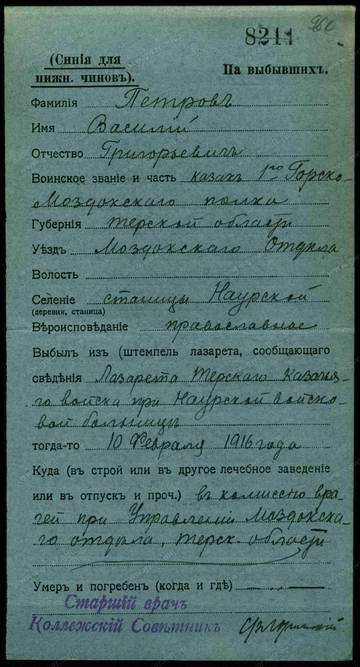 260
8241
(Синія для
нижн. чиновъ).
На выбывшихъ.
Фамилія Петровъ
Имя Василій
Отчество Григорьевичъ
Воинское званіе и часть казакъ 1го Горско-
Моздокскаго полка
Губернія Терской области
Уѣздъ Моздокскаго Отдѣла
Волость
Селеніе станицы Наурской
(деревня, станица)
Вѣроисповѣданіе православное
Выбылъ изъ (штемпель лазарета, сообщающаго
свѣдѣнія Лазарета Терскаго Казачья-
го войска при Наурской войско-
вой больницы
тогда-то 10 Февраля 1916 года
Куда (въ строй или въ другое лечебное заведеніе
или въ отпускъ и проч.) въ комиссію вра-
чей при Управленіи Моздокска-
го отдѣла, Терск. области
Умеръ и погребенъ (когда и гдѣ) — „ —
Старшій врачъ
Коллежскій Совѣтникъ